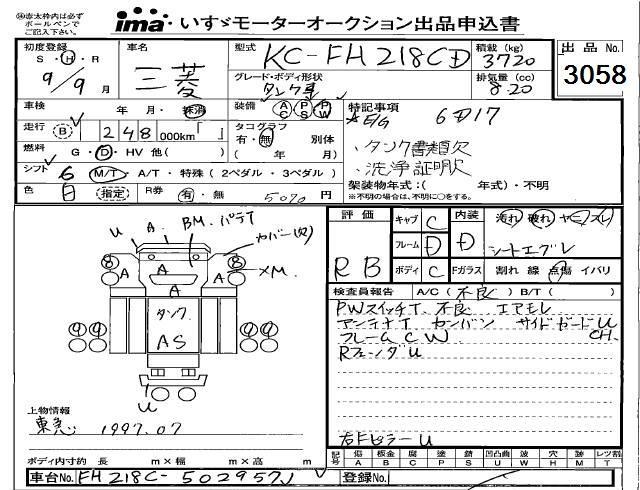 ㊟赤太枠内は必ず
ボールペンで
ご記入下さい。
ima・いすゞモーターオークション出品申込書
初度登録
S・H・R
9/9月
車名
三菱
型式 KC-FH218CD
グレード・ボディ形状
タンク車
積載(kg)
3720
排気量(cc)
8.20
出品No.
3058
車検 年・月・抹消
装備 AC PS PW
特記事項 6D17
走行 B 248,000km「 」
タコグラフ 別体
有・無
( 年 月)
★E/G
・タンク書類欠
・洗浄証明欠
燃料 G・D・HV 他( )
シフト 6 M/T・A/T・特殊(2ペダル・3ペダル)
架装物年式:( 年式)・不明
※不明の場合は、不明に○をする。
色 白 (指定) R券 有・無 5070円
評価
RB
キャブ C
フレーム D
ボディ C
内装 D
Fガラス
汚れ 破れ ヤニ スレ
シートエグレ
割れ 線 点傷 イバリ
検査員報告 A/C(不良)B/T( )
PWスイッチT 不良 エアモレ
アンテナT カンバン サイドガードU
フレームCW CH.
RフェンダU
右FピラーU
U A BM.パテT
カバー(欠)
XM.
⑧ A A A A ⑧
タンク
AS
④ ④ ④ ④
U
上物情報
東急
1997.07
ボディ内寸約 長 m×幅 m×高 m
記号 傷 A 板金 B 腐 C 塗 P 錆 S 凹凸曲 U 波 W 穴 H 外 M レンズ割 T
車台No. FH218C-502957J
登録No.